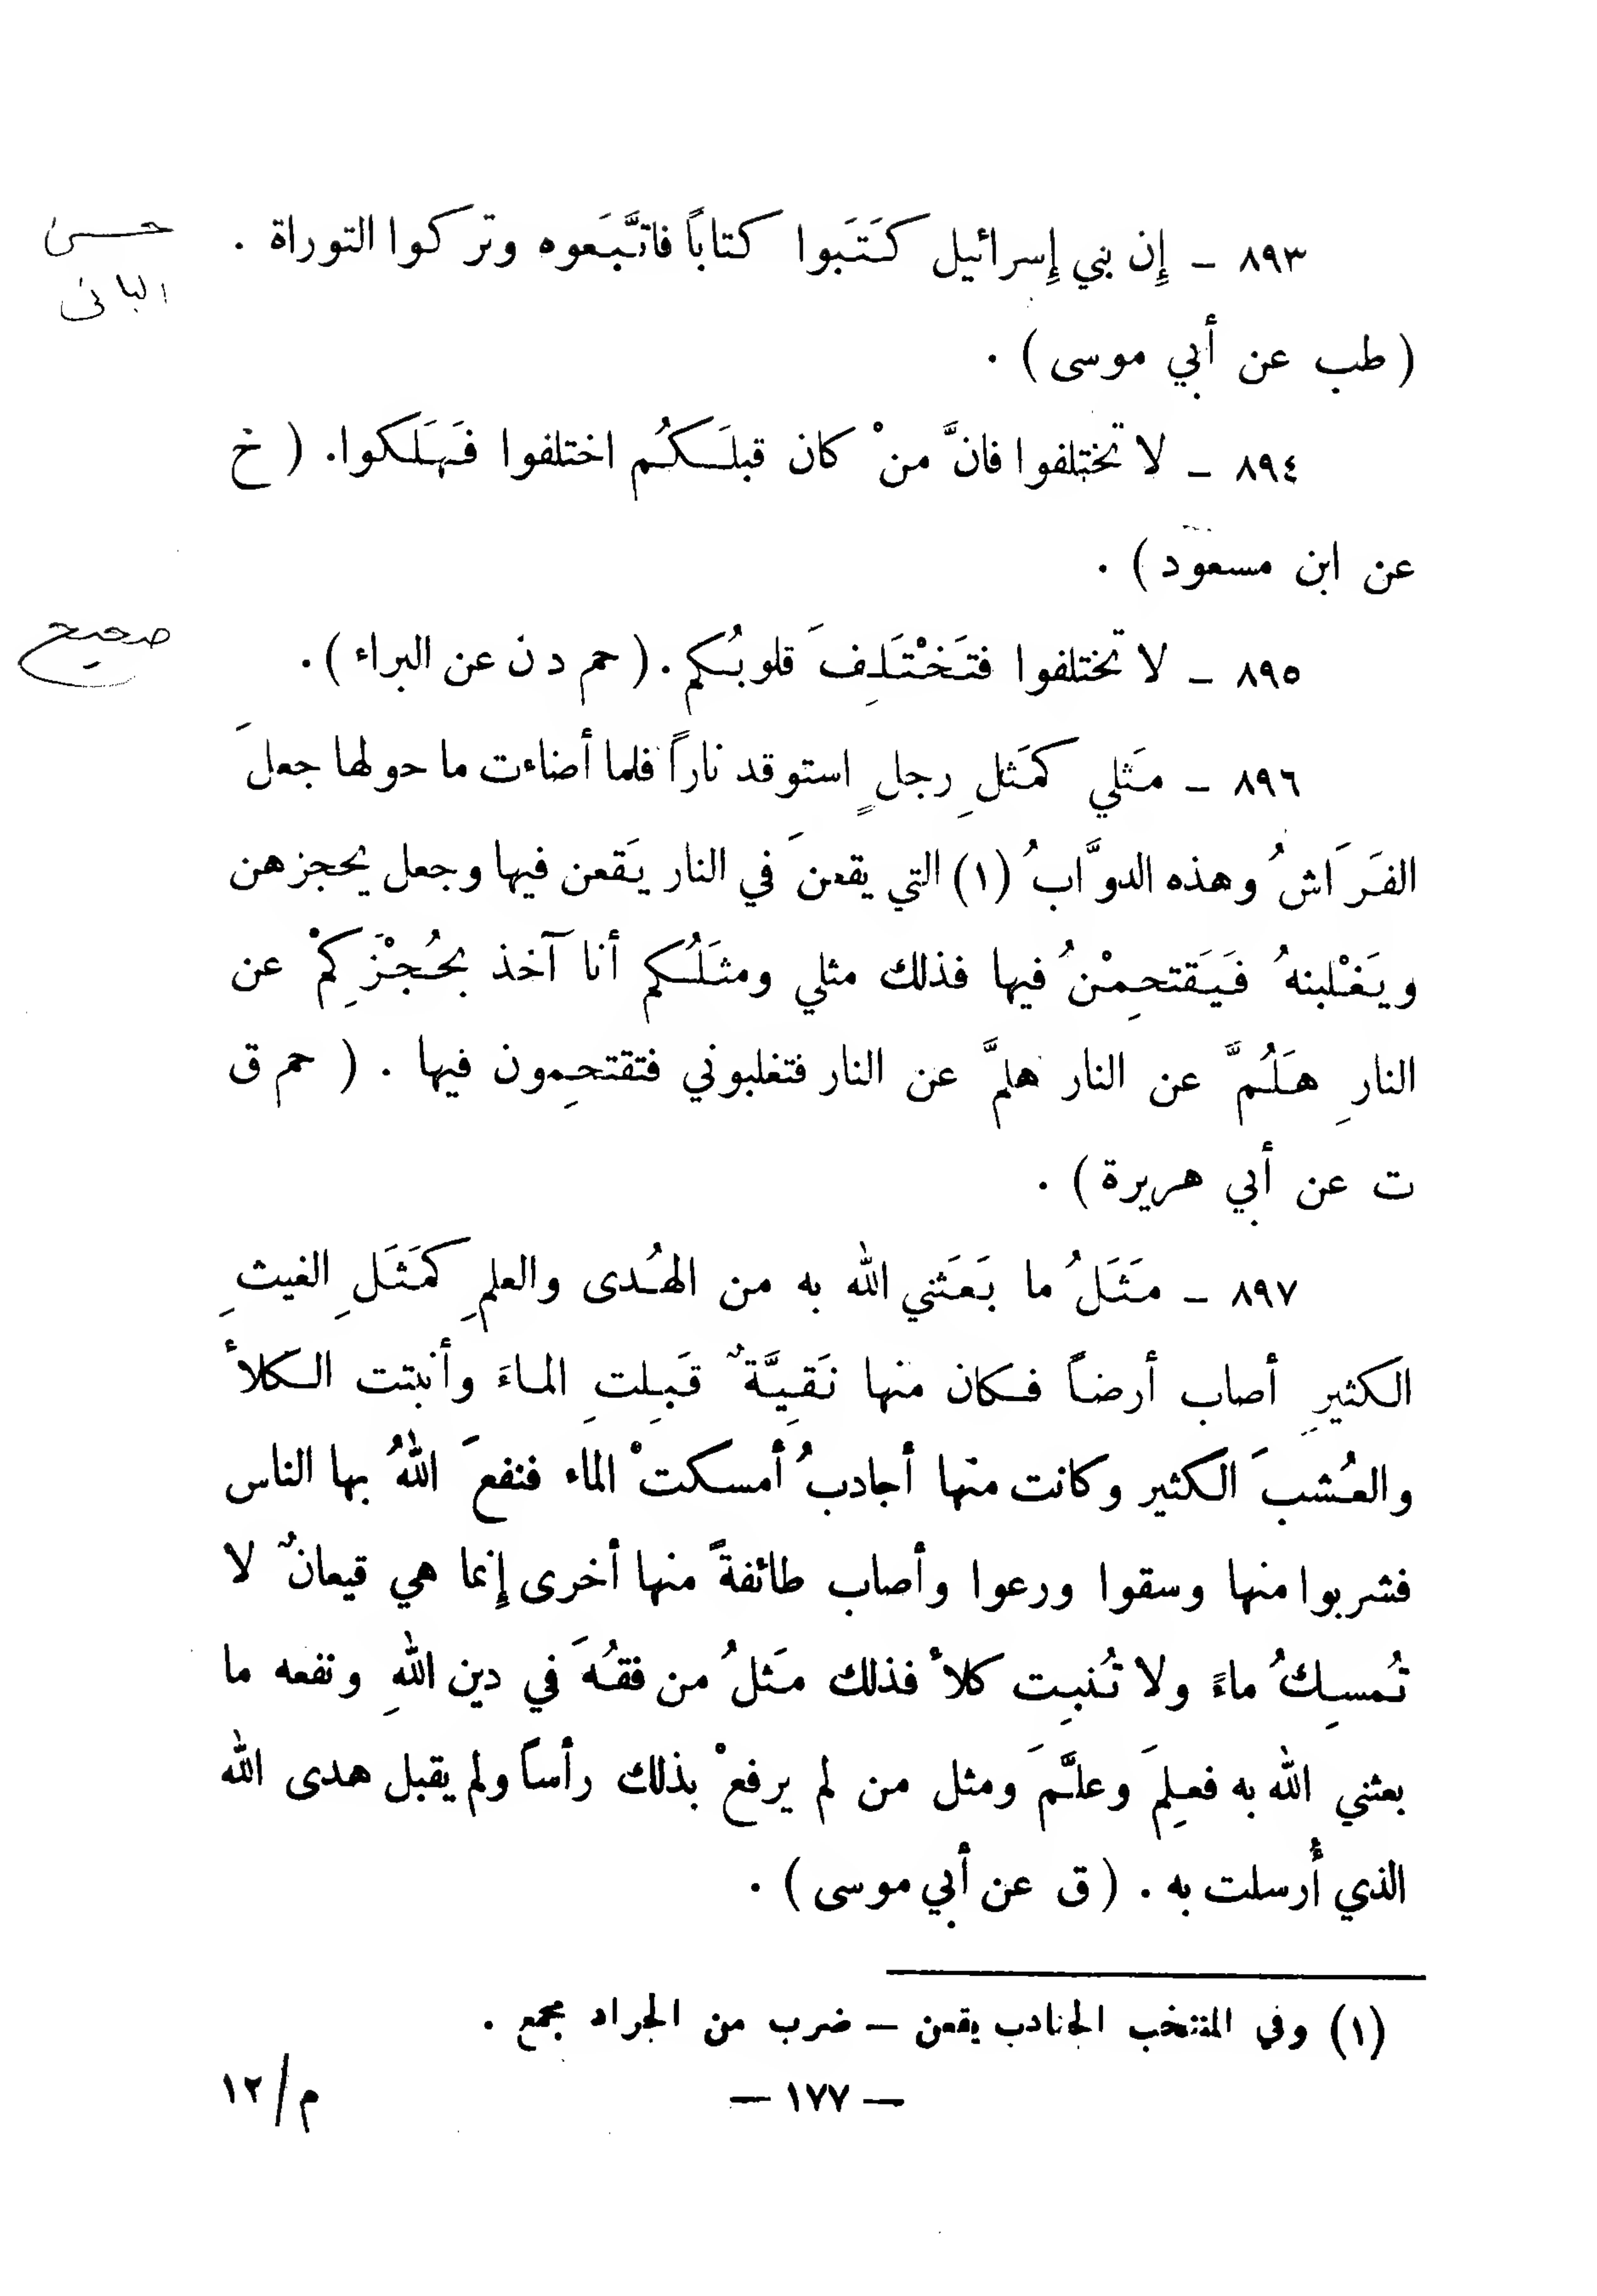 ٨٩٣ ـ إِن بني إِسرائيل كَتَبوا كتاباً فاتَّبَعوه وتركوا التوراة .
حسن
البانى
( طب عن أبي موسى ) .
٨٩٤ ـ لا تختلفوا فانَّ منْ كان قبلَكُم اختلفوا فَهَلَكوا. ( خ
عن ابن مسعود ) .
٨٩٥ ـ لا تختلفوا فتَخْتَلِفَ قلوبُكم . ( حم د ن عن البراء ) .
صحيح
٨٩٦ ـ مَثلي كمَثلِ رجلٍ استوقد ناراً فلما أضاءت ما حولها جعلَ
الفَرَاشُ وهذه الدوَّابُ (١) التي يقعنَ في النار يَقعن فيها وجعل يحجزهن
ويَغْلبنهُ فَيَقتحِمْنُ فيها فذلك مثلي ومثَلُكم أنا آخذ بحُجْزَكِمْ عن
النارِ هَلُمَّ عن النار هلمَّ عن النار فتغلبوني فتقتحِمون فيها . ( حم ق
ت عن أبي هريرة ) .
٨٩٧ ـ مَثَلُ ما بَعَثني الله به من الهُدى والعلمِ كمَثَلِ الغيثِ
الكثيرِ أصاب أرضاً فكان منها نَقِيَّةٌ قَبِلتِ الماءَ وأنبتت الكلأ
والعُشبَ الكثير وكانت منها أجادبُ أمسكتْ الماء فنفعَ اللهُ بها الناس
فشربوا منها وسقوا ورعوا وأصاب طائفةً منها أخرى إِنما هي قيعانٌ لا
تُمسِكُ ماءً ولا تُنبِت كلأ فذلك مَثلُ من فقُهَ في دين اللهِ ونفعه ما
بعثني الله به فعلِمَ وعلَّمَ ومثل من لم يرفعْ بذلك رأساً ولم يقبل هدى الله
الذي أُرسلت به . ( ق عن أبي موسى ) .
(١) وفي المنتخب الجنادب يقعن ـ ضرب من الجراد مجمع .
ـ ١٧٧ ـ
م/١٢